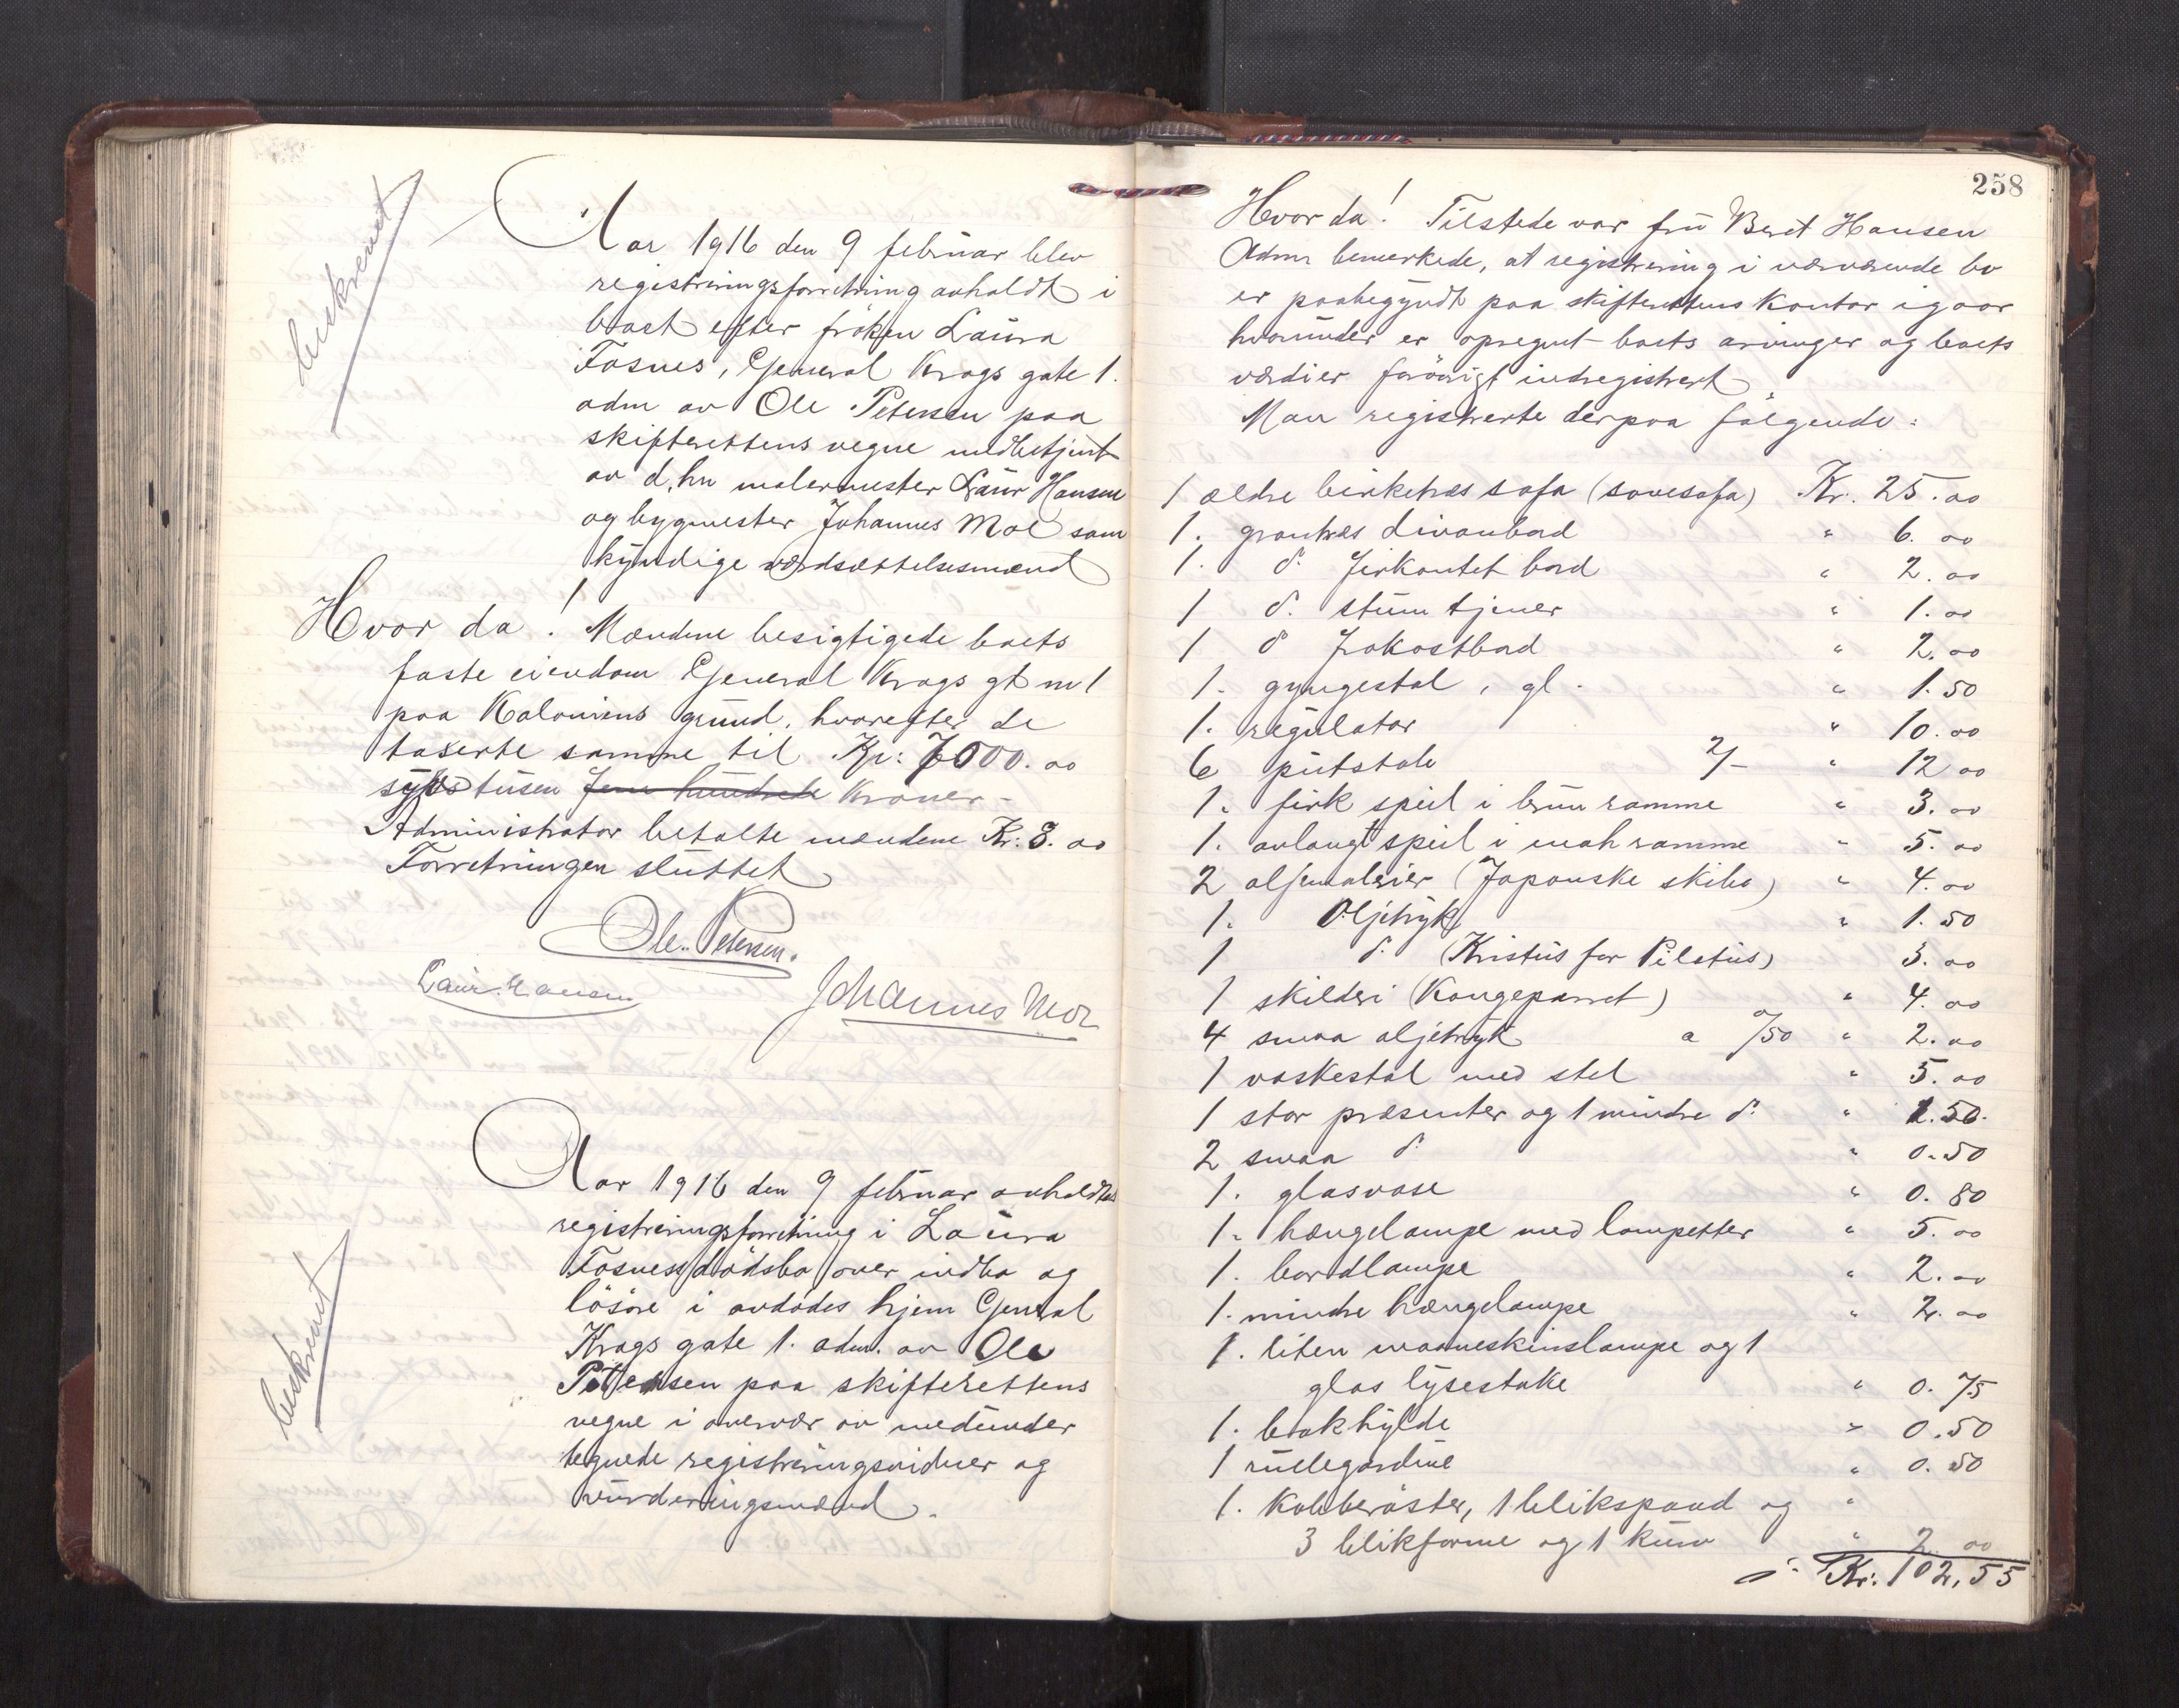 beskrevet
Aar 1916 den 9 februar blev
registreringsforretning avholdt i
boet efter frøken Laura
Fosnes, General Krags gate 1.
adm av Ole Petersen paa
skifterettens vegne medbetjent
av d,hrr malermester Laur Hansen
og bygmester Johannes Moe som
kyndige værdsættelsesmænd
Hvor da! Mændene besigtigede boets
faste eiendom General Krags gt nr 1
paa Kaloniens grund, hvorefter de
taxerte samme til Kr: 7000.00
syv tusen fem hundrede Kroner –
Administrator betalte mændene Kr: 8.00
Forretningen sluttet
Ole Petersen.
Laur. Hansen
Johannes Moe
beskrevet
Aar 1916 den 9 februar avholdtes
registreringsforretning i Laura
Fosness dødsbo over indbo og
løsøre i avdødes hjem General
Krags gate 1. adm. av Ole
Petersen paa skifterettens
vegne i overvær av medunder
tegnede registreringsvidner og
vurderingsmænd.
258
Hvor da! Tilstede var fru Berit Hansen
Adm bemerkede, at registrering i nærværende bo
er paabegyndt paa skifterettens Kontor igaar
hvorunder er opregnet boets arvinger og boets
værdier forøvrigt indregistrert
Man registrerte derpaa følgende:
1 ældre birketræs sofa (sovesofa) Kr. 25.00
1. grantræs divanbord " 6.00
1. d. firkantet bord " 2.00
1 d. stum tjener " 1.00
1 d frokostbord " 2.00
1. gyngestol, gl. " 1.50
1. regulator " 10.00
6 putstole 2/- " 12 00
1. firk speil i brun ramme " 3.00
1. avlangt speil i mah ramme " 5.00
2 oljemalerier (Japanske skibo) " 4.00
1. Oljetryk " 1.50
1 d. (Kristus for Pilatus) 3.00
1 skilderi (Kongeparret) " 4.00
4 smaa oljetryk a 0/50 " 2.00
1 vaskestol med stel " 5.00
1 stor præsenter og 1 mindre d. " 1.50.
2 smaa d. " 0.50
1. glasvase " 0.80
1. hængelampe med lampetter " 5.00
1. bordlampe " 2.00
1. mindre hængelampe " 2.00
1. liten maaneskinslampe og 1
glas lysestake " 0.75
1. bokhylde " 0.50
1 rullegardine " 0.50
1. Kobberøster, 1 blikspand og "
3 blikforme og 1 kurv " 2 00
Kr: 102,55